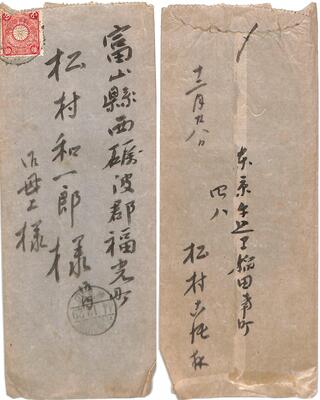 富山縣西礪波郡福光町
松村和一郎様
御母上様
十二月廿八日
東京牛込早稲田
四八
松村